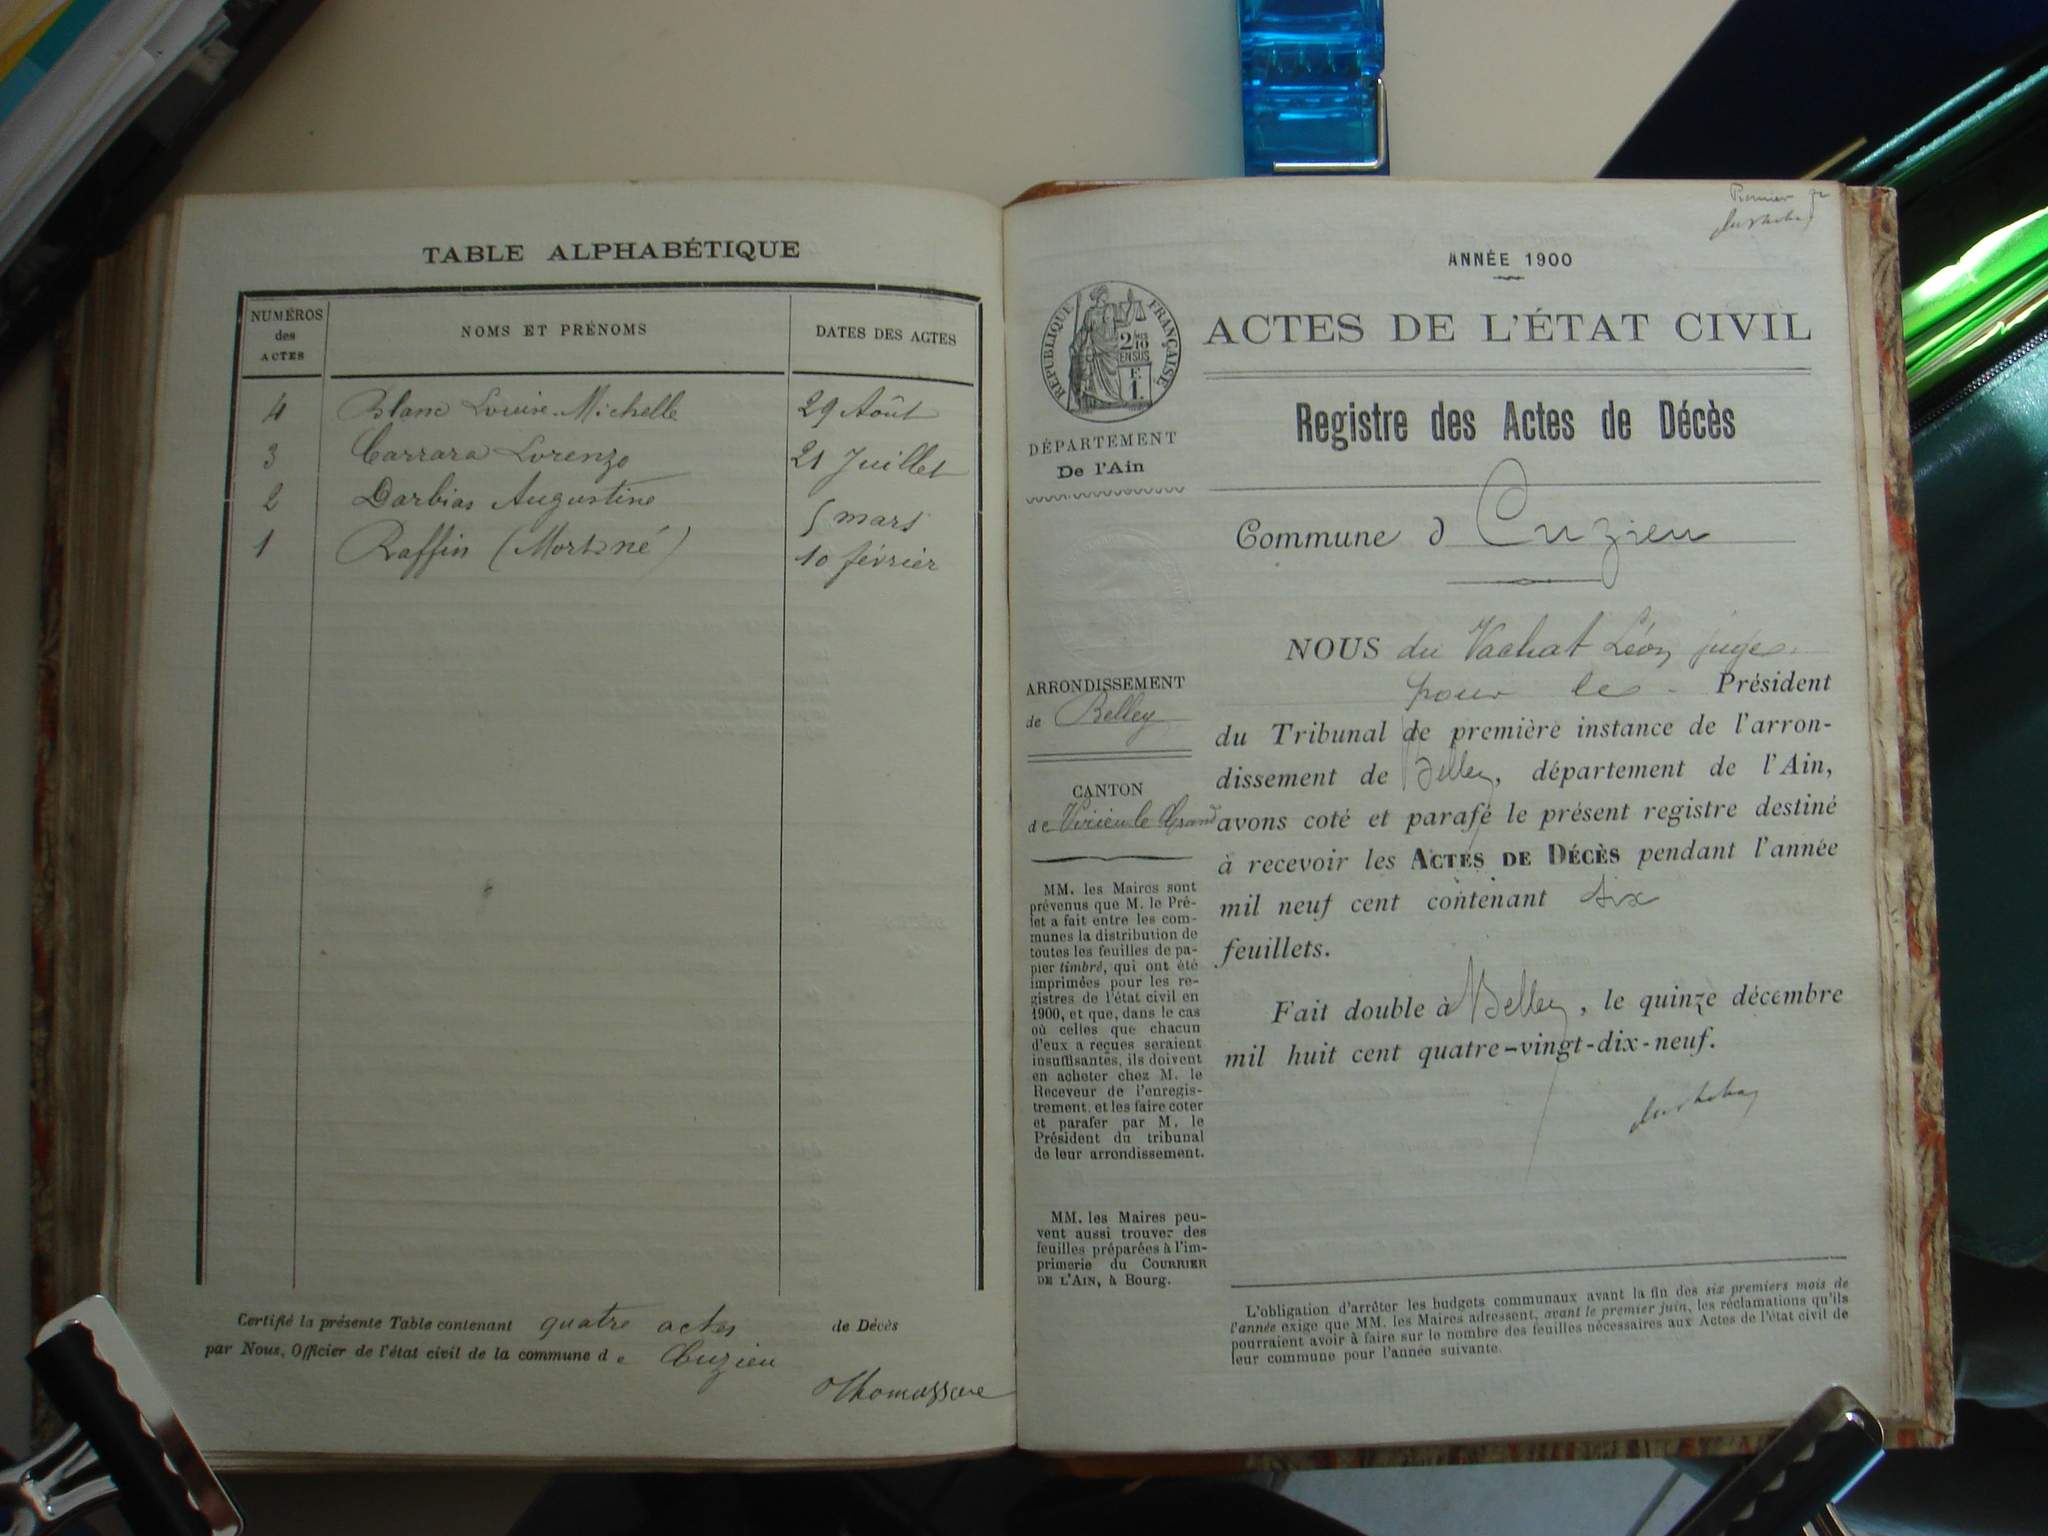 TABLE ALPHABÉTIQUE
NUMÉROS
des
ACTES
NOMS ET PRÉNOMS
DATES DES ACTES
4 Blanc Louise Michelle 29 Août
3 Carrara Lorenzo 21 Juillet
2 Darbias Augustine 5 mars
1 Raffin (Mort-né) 10 février
Certifié la présente Table contenant quatre actes de Décès
par Nous, Officier de l'état civil de la commune de Cuzieu
Premier
ANNÉE 1900
RÉPUBLIQUE FRANÇAISE
2 10
EN SUS
F.
1.
ACTES DE L'ÉTAT CIVIL
DÉPARTEMENT
De l'Ain
Registre des Actes de Décès
Commune d Cuzieu
ARRONDISSEMENT
de Belley
CANTON
de Virieu le Grand
MM. les Maires sont
prévenus que M. le Pré-
fet a fait entre les com-
munes la distribution de
toutes les feuilles de pa-
pier timbré, qui ont été
imprimées pour les re-
gistres de l'état civil en
1900, et que, dans le cas
où celles que chacun
d'eux a reçues seraient
insuffisantes, ils doivent
en acheter chez M. le
Receveur de l'enregis-
trement, et les faire coter
et parafer par M. le
Président du tribunal
de leur arrondissement.
MM. les Maires peu-
vent aussi trouver des
feuilles préparées à l'im-
primerie du COURRIER
DE L'AIN, à Bourg.
NOUS du Vachat Léon juge
pour le Président
du Tribunal de première instance de l'arron-
dissement de Belley, département de l'Ain,
avons coté et parafé le présent registre destiné
à recevoir les ACTES DE DÉCÈS pendant l'année
mil neuf cent contenant six
feuillets.
Fait double à Belley, le quinze décembre
mil huit cent quatre-vingt-dix-neuf.
L'obligation d'arrêter les budgets communaux avant la fin des six premiers mois de
l'année exige que MM. les Maires adressent, avant le premier juin, les réclamations qu'ils
pourraient avoir à faire sur le nombre des feuilles nécessaires aux Actes de l'état civil de
leur commune pour l'année suivante.